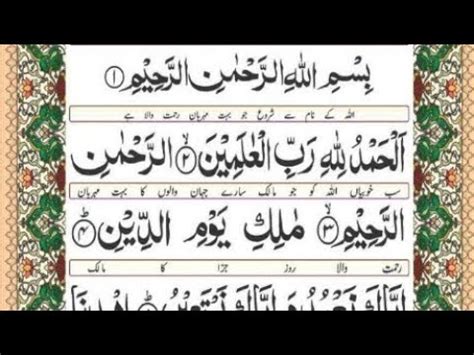 بِسْمِ اللهِ الرَّحْمٰنِ الرَّحِيْمِ ۝۱
اللہ کے نام سے شروع جو بہت مہربان رحمت والا ہے
اَلْحَمْدُ لِلّٰهِ رَبِّ الْعٰلَمِيْنَ ۝۲ۙ الرَّحْمٰنِ
سب خوبیاں اللہ کو جو مالک سارے جہان والوں کا بہت مہربان
الرَّحِيْمِ ۝۳ۙ مٰلِكِ يَوْمِ الدِّيْنِ ۝۴ؕ
رحمت والا روز جزا کا مالک
اِيَّاكَ نَعْبُدُ وَ اِيَّاكَ نَسْتَعِيْنُ اِهْدِنَا